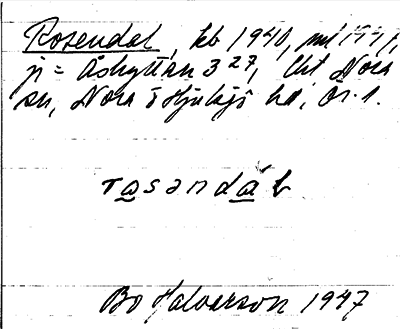 Rosendal, kb 1940, md 1947,
ji = Åshyttan 3 27, Nora
sn, Nora o Hjulsjö hd, Ör. l.
rasəndaʹl
Bo Halvarson 1947